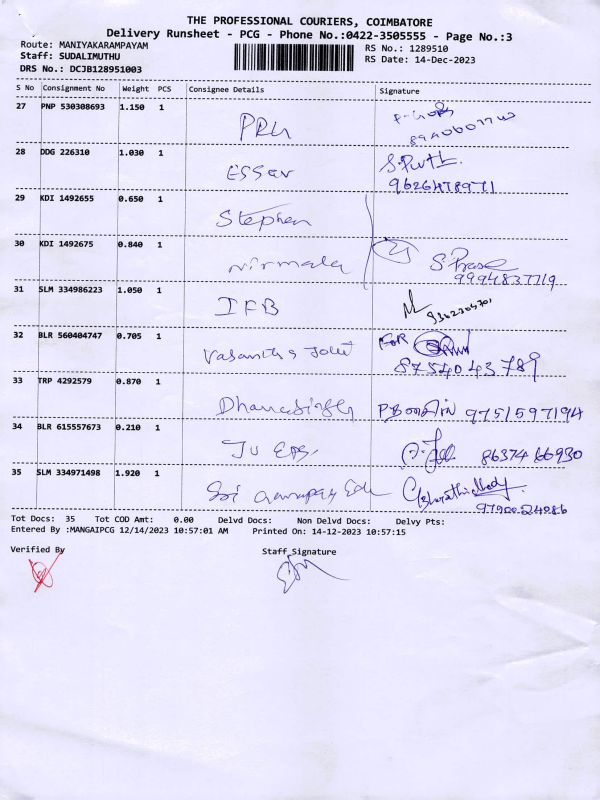 THE PROFESSIONAL COURIERS, COIMBATORE
Delivery Runsheet - PCG - Phone No.:0422-3505555 - Page No.:3
Route: MANIYAKARAMPAYAM RS No.: 1289510
Staff: SUDALIMUTHU RS Date: 14-Dec-2023
DRS No.: DCJB128951003
S No Consignment No Weight PCS Consignee Details Signature
27 PNP 530308693 1.150 1 PRG
28 DDG 226310 1.030 1 ESSAR
9626478971
29 KDI 1492655 0.650 1 Stephen
30 KDI 1492675 0.840 1 Nirmala S. Prasa
9994837719
31 SLM 334986223 1.050 1 IFB
9362304701
32 BLR 560404747 0.705 1 FOR
8754043789
33 TRP 4292579 0.870 1 9751597194
34 BLR 615557673 0.210 1 8637466930
35 SLM 334971498 1.920 1 Sri
Tot Docs: 35 Tot COD Amt: 0.00 Delvd Docs: Non Delvd Docs: Delvy Pts:
Entered By :MANGAIPCG 12/14/2023 10:57:01 AM Printed On: 14-12-2023 10:57:15
Verified By Staff Signature